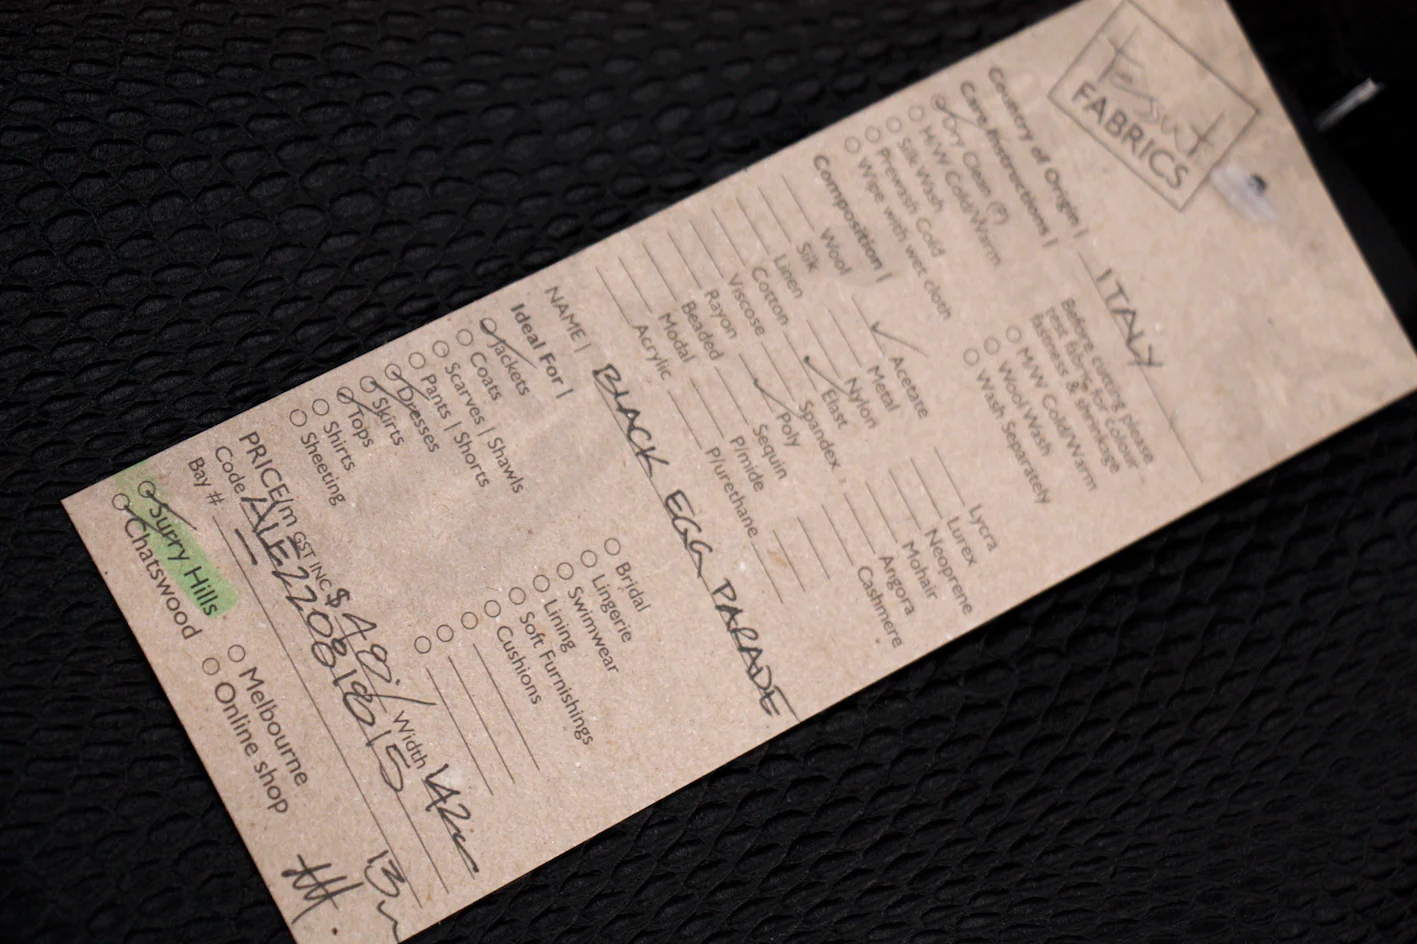 Tessuti
FABRICS
Country of Origin | ITALY
Care Instructions |
Dry Clean (P)
H/W Cold/Warm
Silk Wash
Prewash Cold
Wipe with wet cloth
Before cutting please
test fabric for colour
fastness & shrinkage
M/W Cold/Warm
Wool Wash
Wash Separately
Composition |
Wool
Silk
Linen
Cotton
Viscose
Rayon
Beaded
Modal
Acrylic
Acetate
Metal
Nylon
Elast
Spandex
Poly
Sequin
P/mide
P/urethane
Lycra
Lurex
Neoprene
Mohair
Angora
Cashmere
NAME | BLACK EGG PARADE
Ideal For |
Jackets
Coats
Scarves | Shawls
Pants | Shorts
Dresses
Skirts
Tops
Shirts
Sheeting
Bridal
Lingerie
Swimwear
Lining
Soft Furnishings
Cushions
PRICE/m GST INC $49./ Width 142cm
Code
Bay #
Surry Hills
Chatswood
Melbourne
Online shop